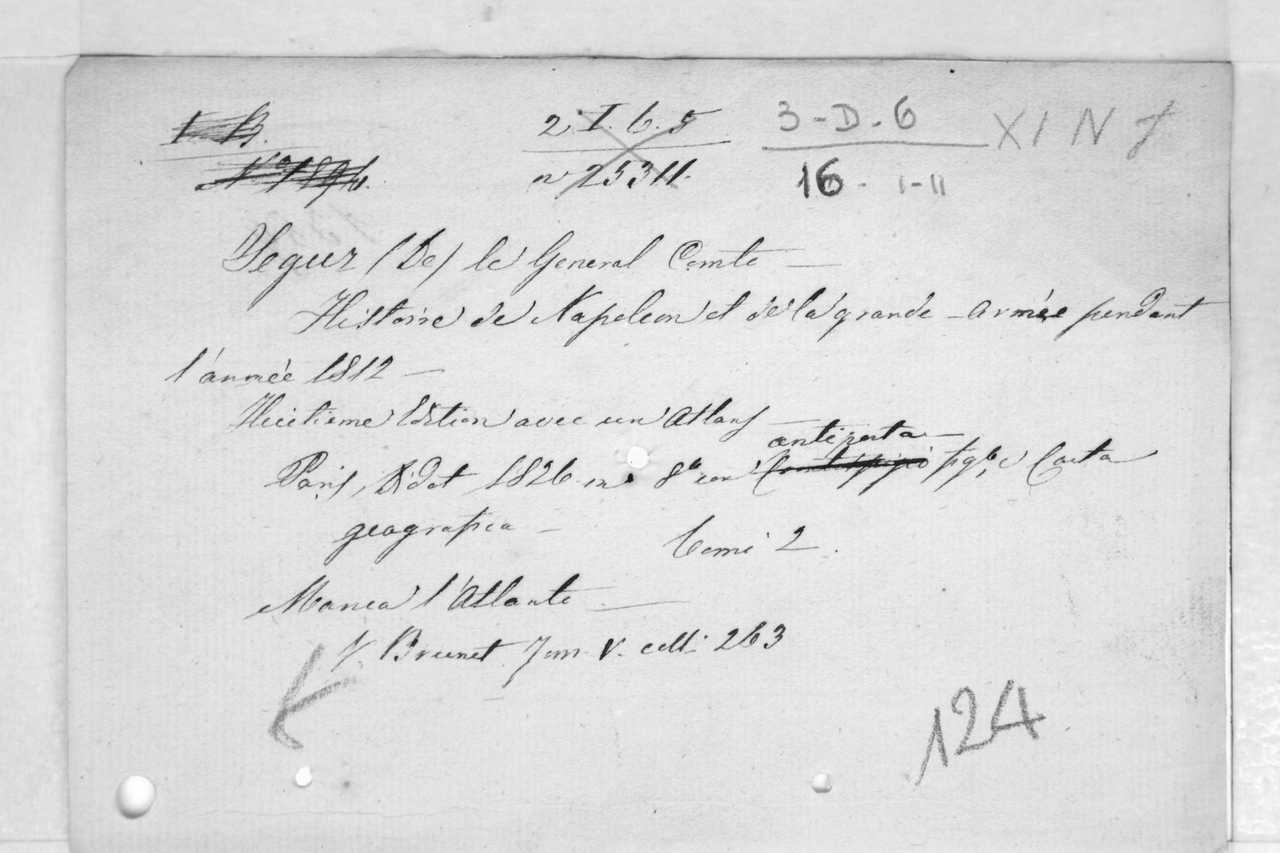 1 B.
2 I. 6. 5
3-D-6
XI N J
N° 1894.
n° 25311.
16 - I-II
Segur (De) le General Comte —
Histoire de Napoleon et de la grande - armée pendant
l'année 1812 —
Huitieme Edition avec un Atlas
antiporta
Paris, Didot 1826 in 8° con figo, e Carta
geografica —
Tomi 2.
Manca l'Atlante
V. Brunet Tom. V. coll. 263
124